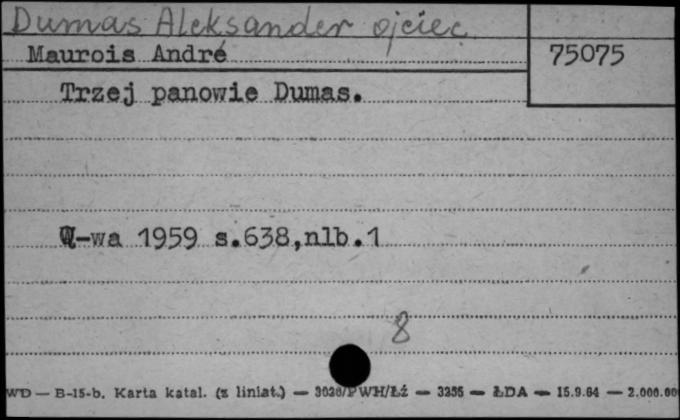 Dumas Aleksander ojciec
Maurois André
75075
Trzej panowie Dumas.
W-wa 1959 s.638,nlb.1
8
WD — B-15-b. Karta katal. (z liniat.) — /PWH/Łź — — ŁDA — 15.9.64 — 2.000.00